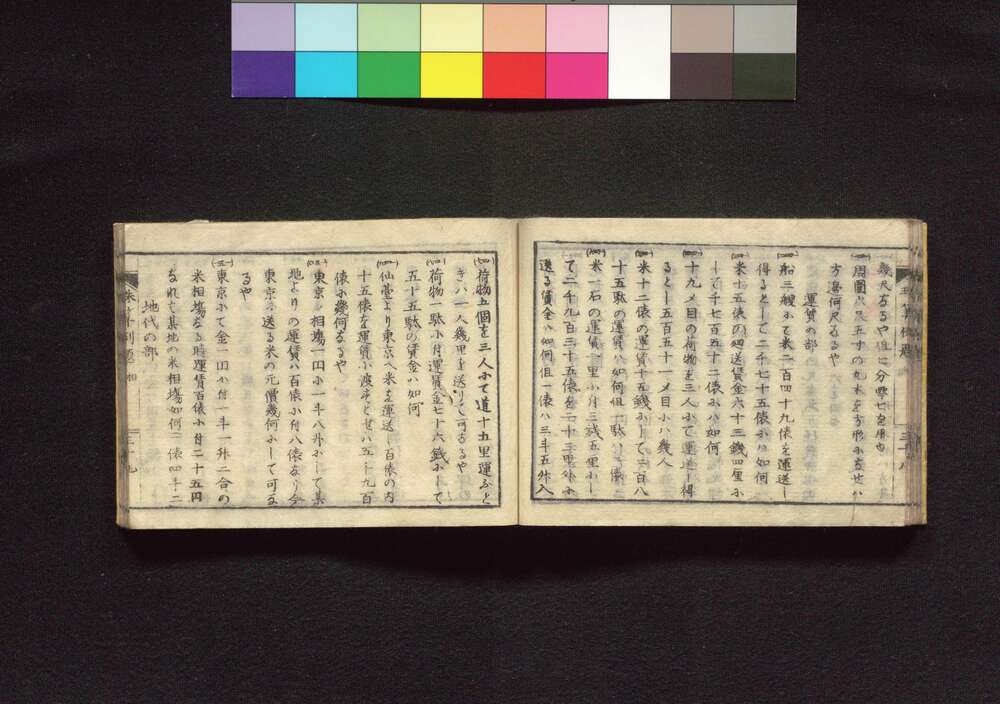 幾尺なるや
周圍六尺五寸の丸木を方形に直せハ
方面何尺なるや
運賃の部
船三艘にて米二百四十九俵を運送し
得るとして二千七十五俵にハ如何
米十五俵の廻送賃金六十二銭四厘に
して千七百五十二俵にハ如何
十九〆目の荷物を三人にて運送し得
るとし五百五十一〆目にハ幾人
米十二俵の運賃十五銭にして二百八
十五駄の運賃ハ如何但一駄ハ二俵
米一石の運賃一里に付三銭五厘にし
て二千九百三十五俵を二十三里外に
送る賃金ハ如何但一俵ハ三斗五升入
荷物五個を三人にて道十五里運ふと
きハ一人幾里を送りて可なるや
荷物一駄に付運賃金七十六銭にして
五十五駄の賃金ハ如何
仙臺より東京へ米を運送し百俵の内
十五俵を運賃に渡すとせハ五千九百
俵に幾何なるや
東京の相場一円に一斗八升にして某
地よりの運賃ハ百俵に付八俵なり今
東京に送る米の元價幾何にして可な
るや
東京にて金一円に付一斗一升二合の
米相場なる時運賃百俵に付二十五円
なれハ某地の米相場如何一俵四斗二
地代の部